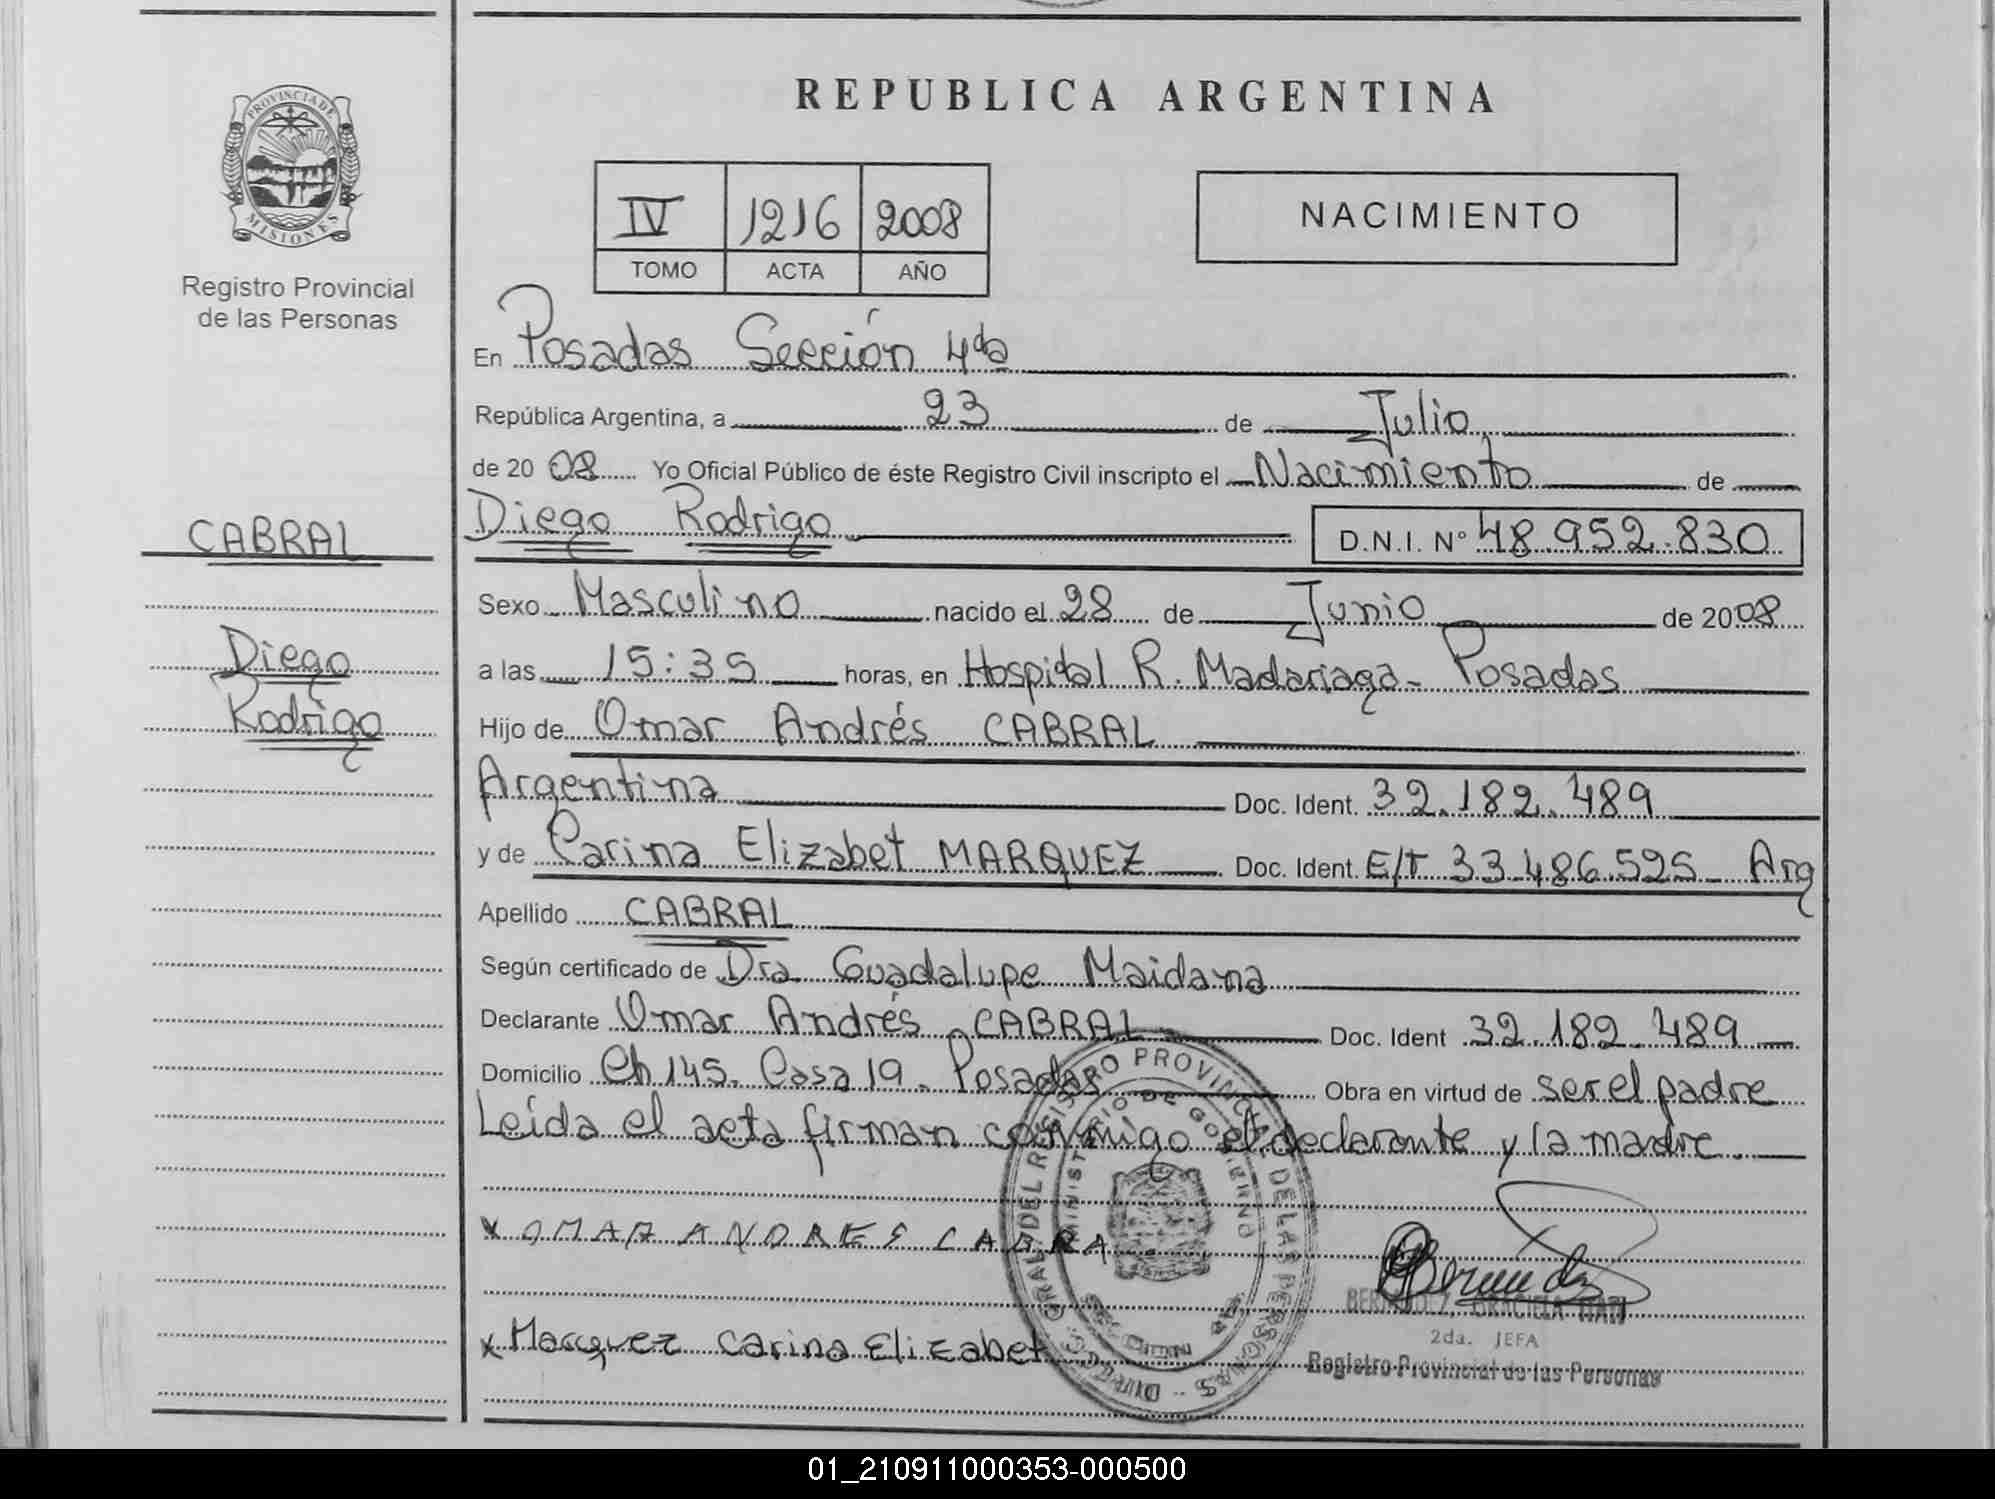 REPUBLICA ARGENTINA
PROVINCIA DE MISIONES
Registro Provincial
de las Personas
IV 1216 2008
TOMO ACTA AÑO
NACIMIENTO
En Posadas Sección 4da
República Argentina, a 23 de Julio,
de 2008 Yo Oficial Público de éste Registro Civil inscripto el Nacimiento de
CABRAL
Diego Rodrigo D.N.I. Nº 48.952.830
Sexo Masculino nacido el 28 de Junio de 2008
Diego
Rodrigo
a las 15:35 horas, en Hospital R. Madariaga - Posadas
Hijo de Omar Andrés CABRAL
Argentina Doc. Ident. 32.182.489
y de Carina Elizabet MARQUEZ Doc. Ident. E/T 33.486.525 - Arg
Apellido CABRAL
Según certificado de Dra Guadalupe Maidana
Declarante Omar Andrés CABRAL Doc. Ident 32.182.489
Domicilio Ch 145. Casa 19. Posadas Obra en virtud de ser el padre
Leída el acta firman conmigo el declarante y la madre.
x OMAR ANDRES CABRA
x Marquez Carina Elizabet
BERMUDEZ, GRACIELA
2da. JEFA
Registro Provincial de las Personas
01_210911000353-000500